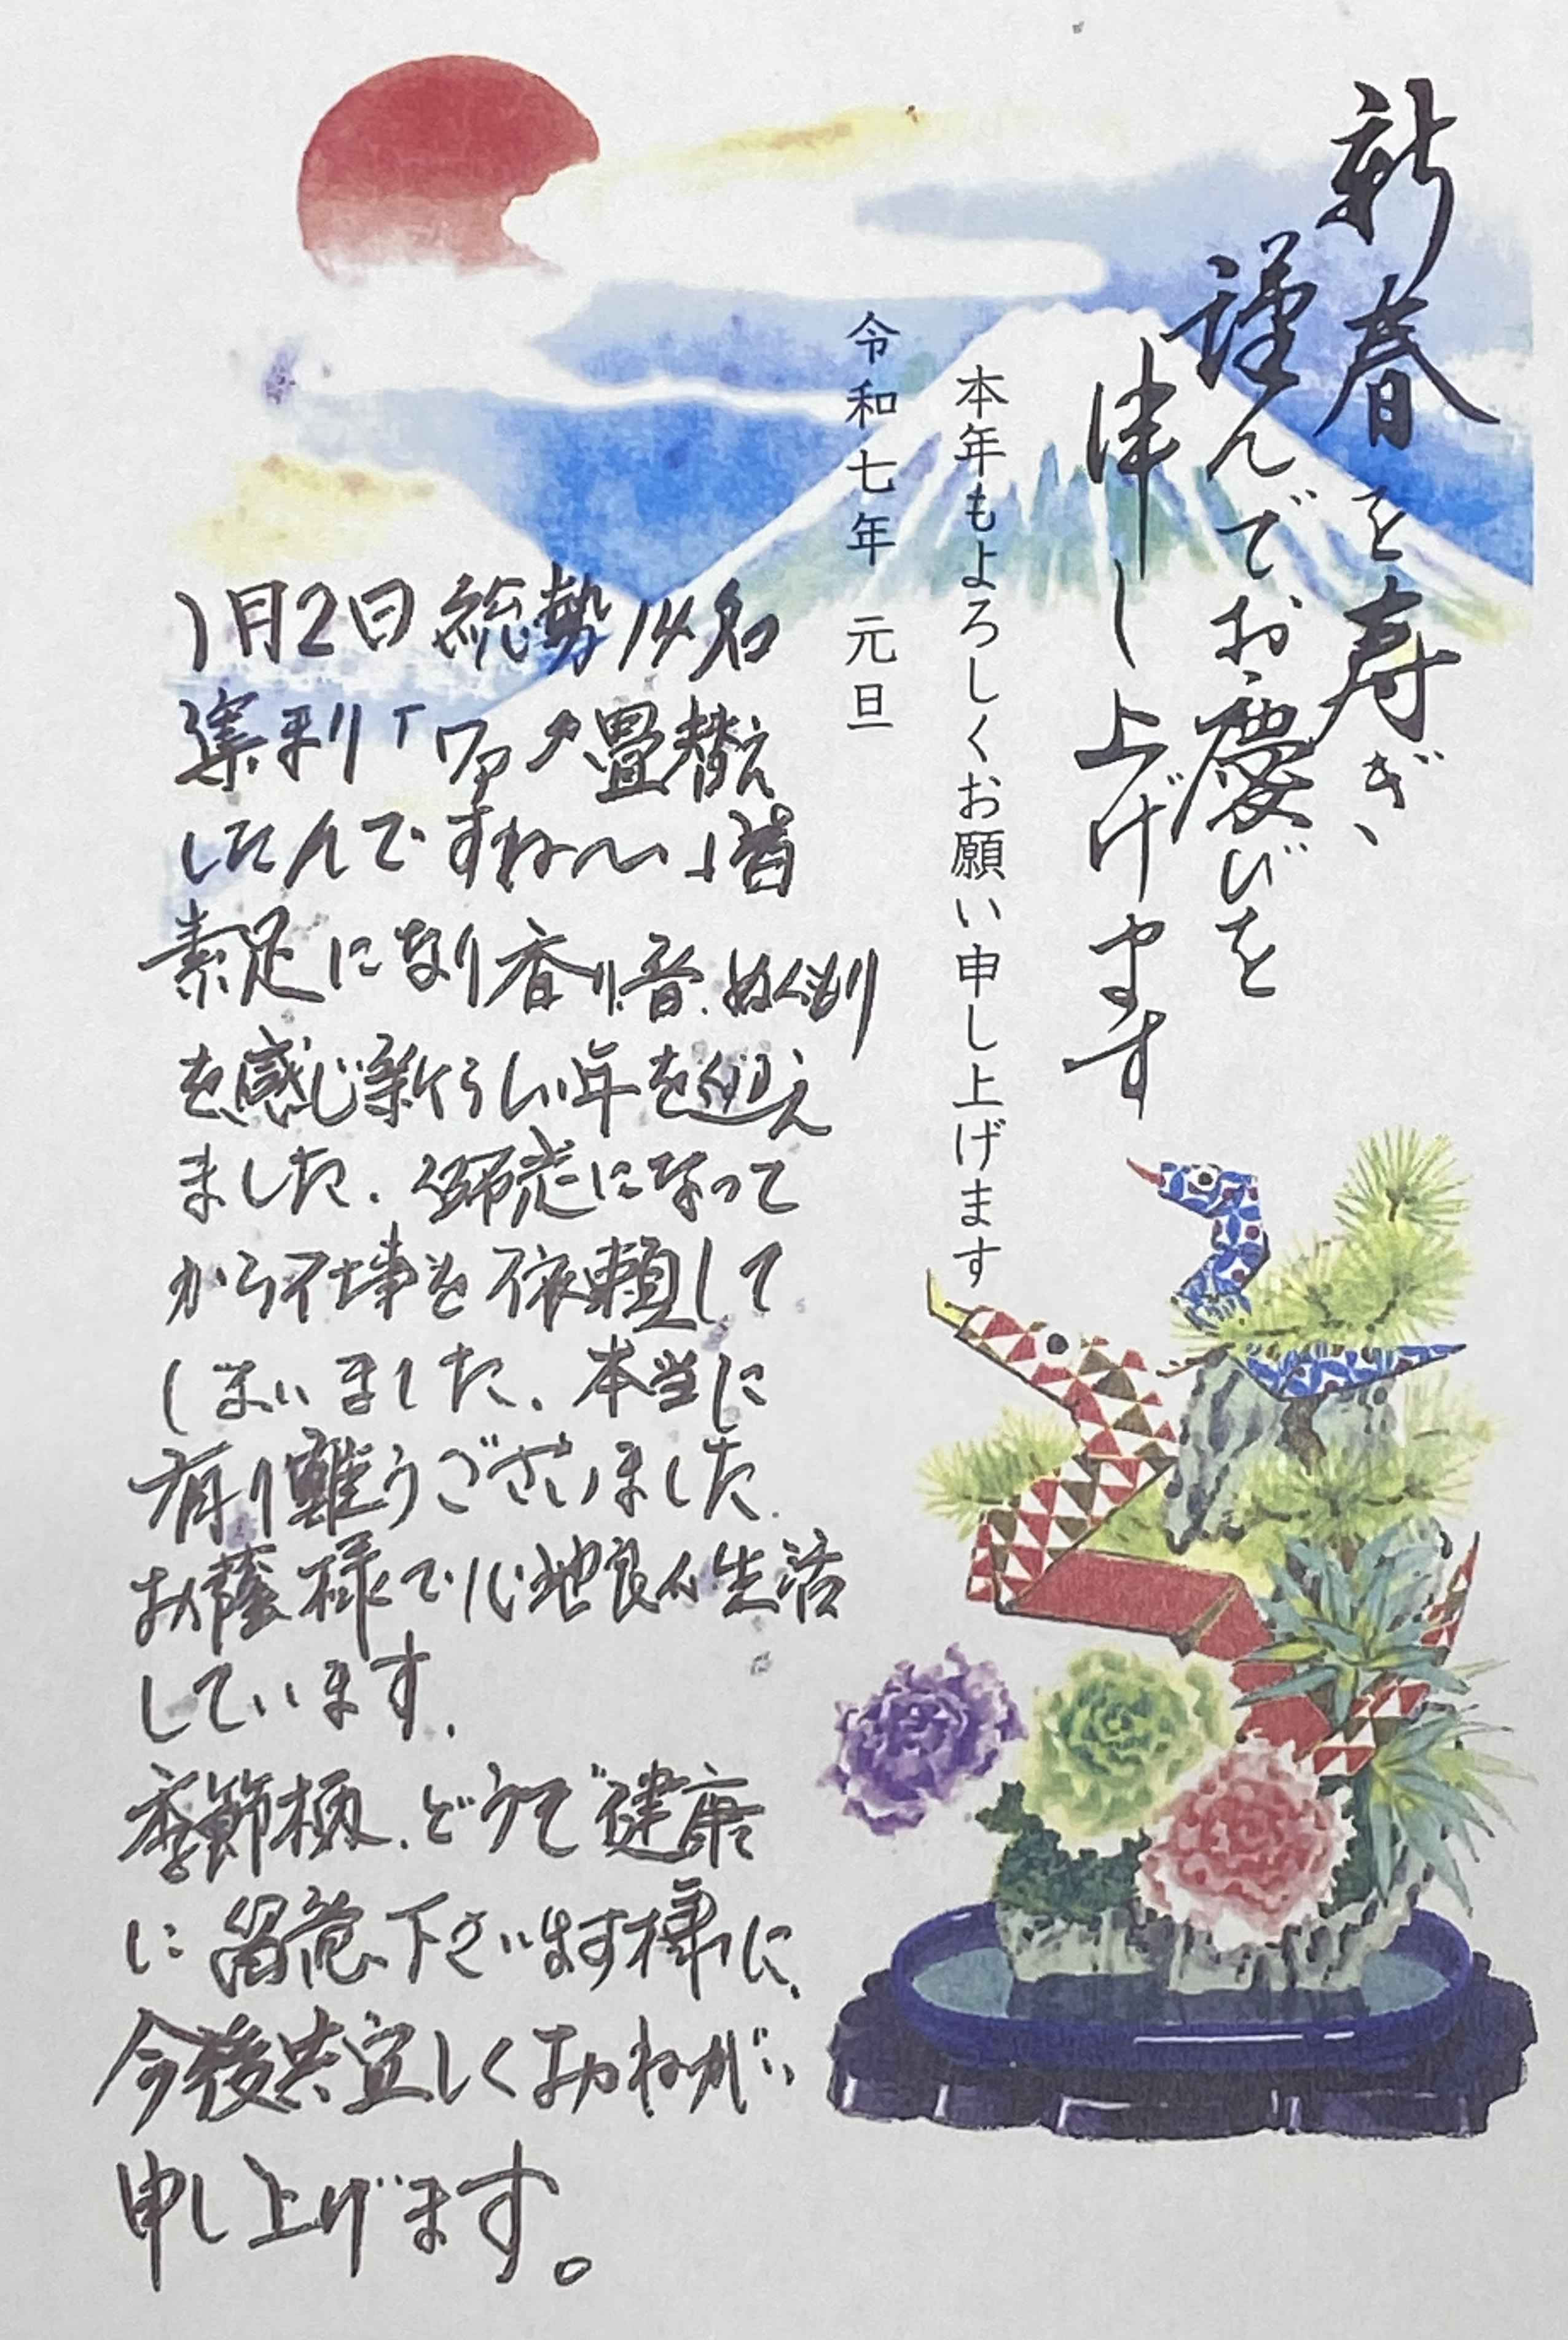 新春を寿ぎ、
謹んでお慶びを
申し上げます
本年もよろしくお願い申し上げます
令和七年 元旦
1月2日総勢14名
集り「ワァ〜畳替え
したんですね〜」皆
素足になり香り.音.ぬくもり
を感じ新らしい年を迎え
ました.師走になって
から仕事を依頼して
しまいました.本当に
有り難うございました.
お蔭様で心地良い生活
しています.
季節柄.どうぞ健康
に留意下さいます様に、
今後共宜しくおねがい
申し上げます。